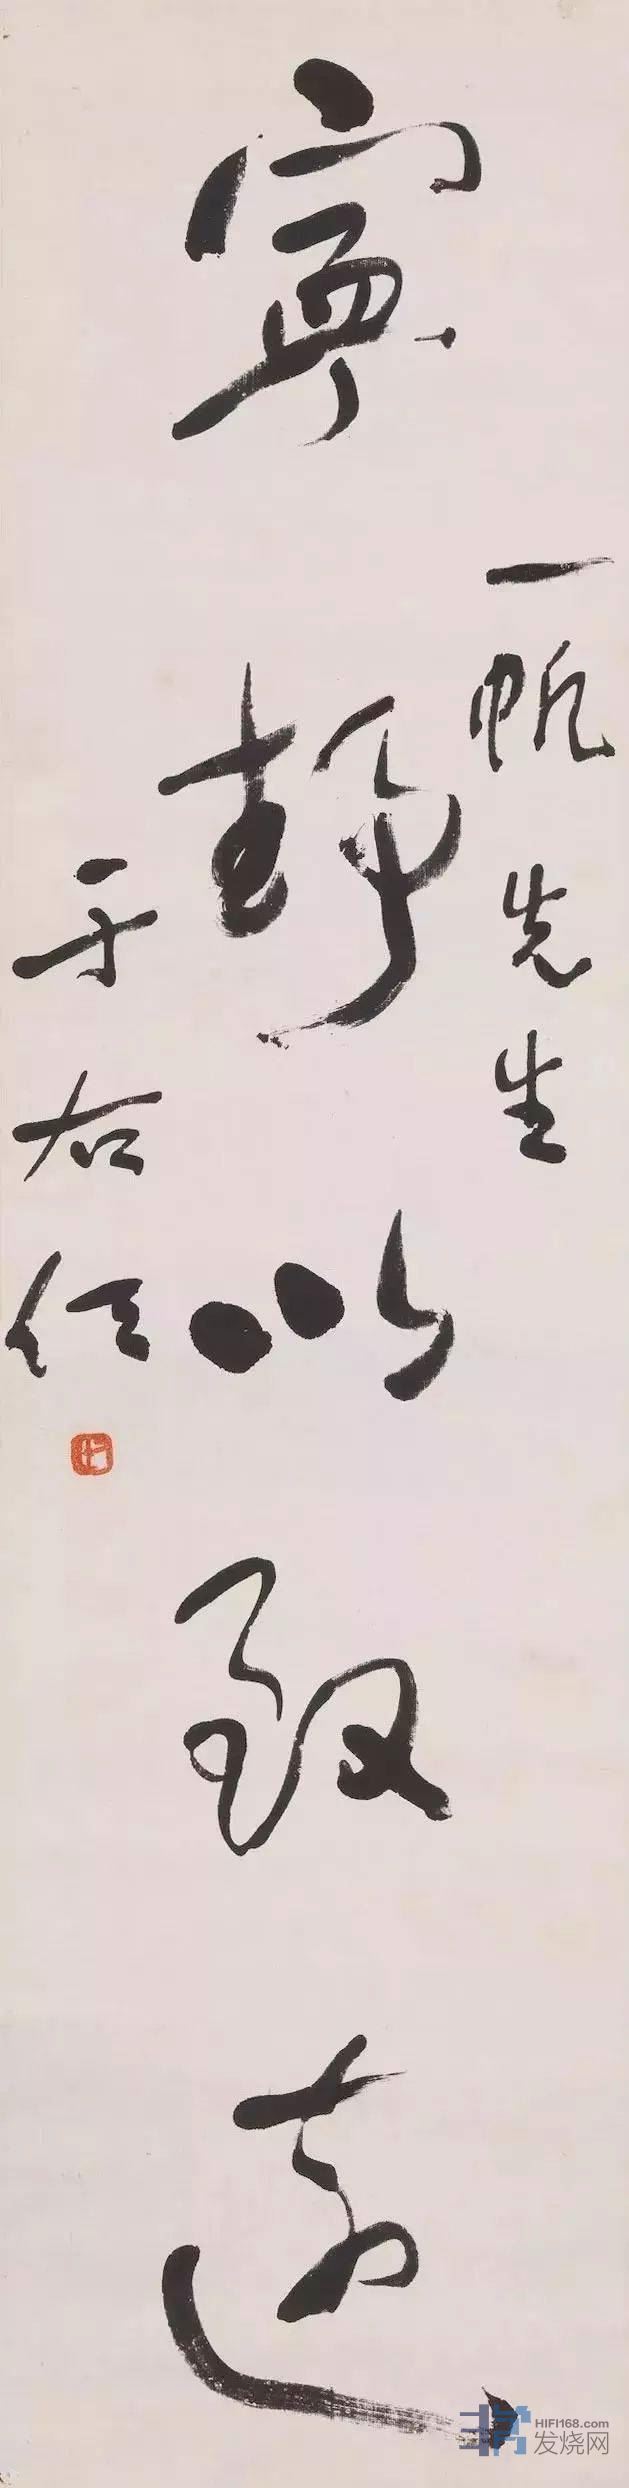 一帆先生
寧靜以致遠
于右任
HIFI168.com
发烧网